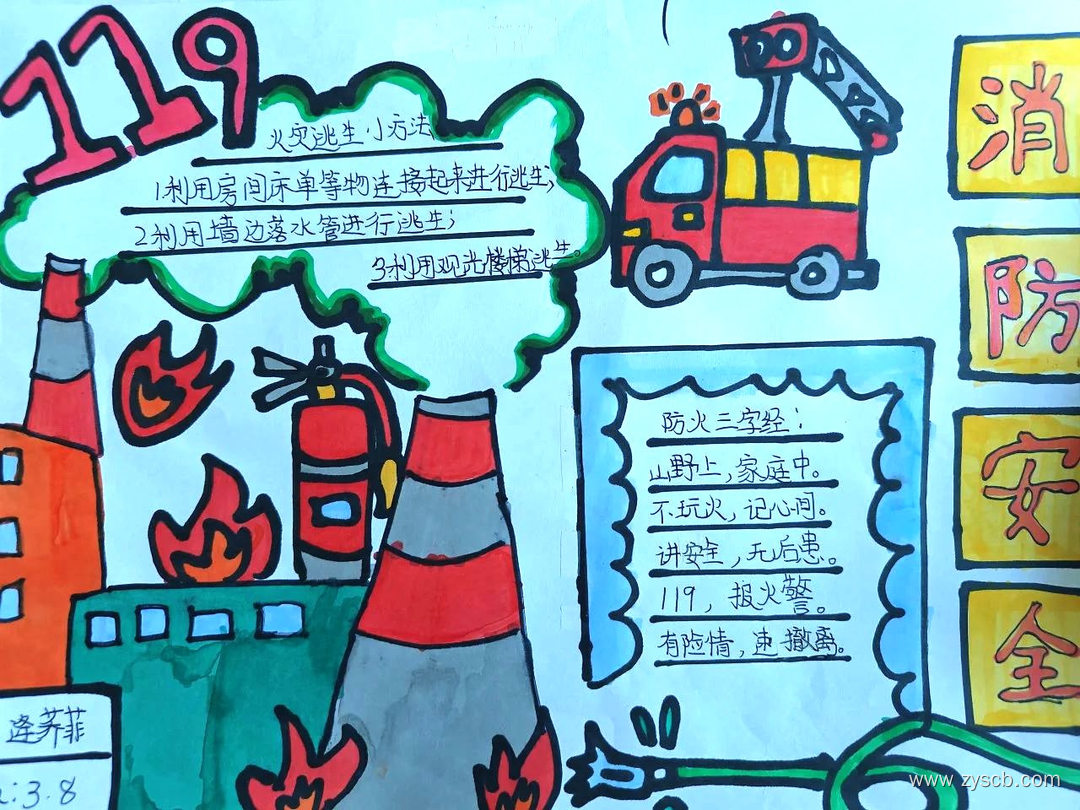 119
火灾逃生小方法
1利用房间床单等物连接起来进行逃生;
2利用墙边落水管进行逃生;
3利用观光楼梯逃生。
消
防
安
全
防火三字经:
山野上,家庭中。
不玩火,记心间。
讲安全,无后患。
119,报火警。
有险情,速撤离。
3.8
www.zyscb.com